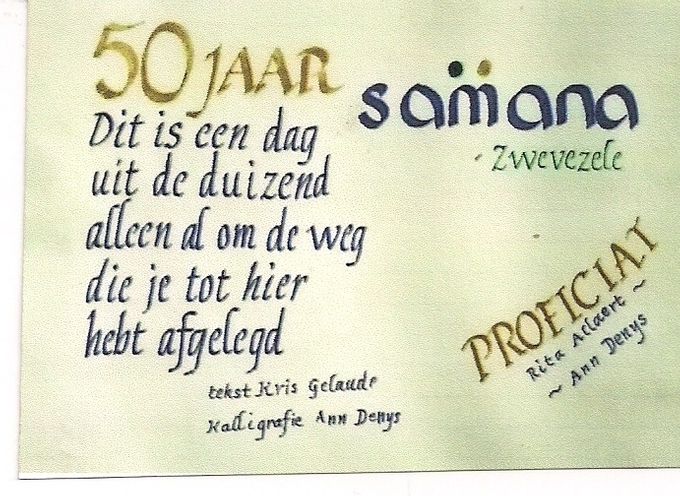 50 JAAR
Dit is een dag
uit de duizend
alleen al om de weg
die je tot hier
hebt afgelegd
tekst Kris Gelaude
Kalligrafie Ann Denys
samana
Zwevezele
PROFICIAT
Rita Aclaert ~
~ Ann Denys